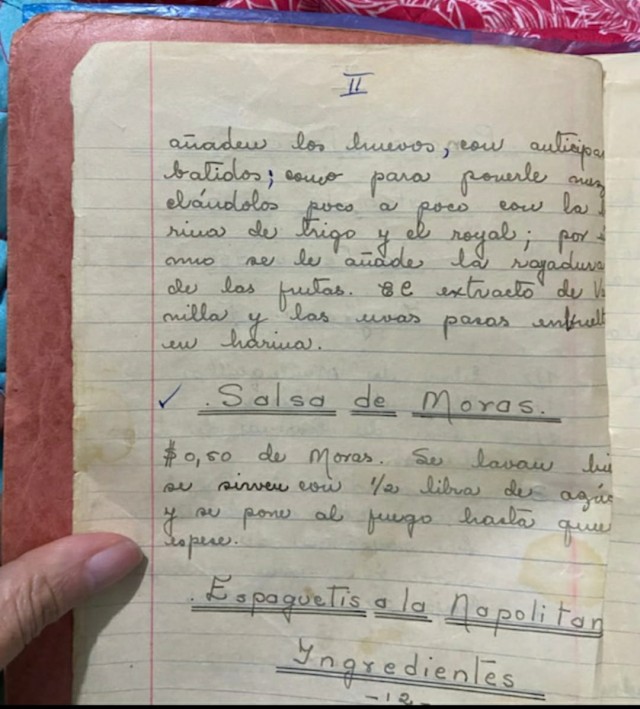 II
añaden los huevos, con anticipa
batidos; como para ponerle mez
clándolos poco a poco con la
rina de trigo y el royal; por
mo se le añade la rayadura
de las frutas. El extracto de Va
nilla y las uvas pasas envuelt
en harina.
✓ .Salsa de Moras.
$0,50 de Moras. Se lavan bie
se sirven con 1/2 libra de azúc
y se pone al fuego hasta que
espese.
.Espaguetis a la Napolitan
Ingredientes
-12-